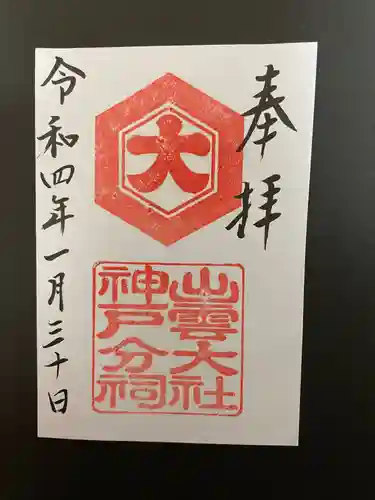 奉拝
大
出雲大社
神戸分祠
令和四年一月三十日